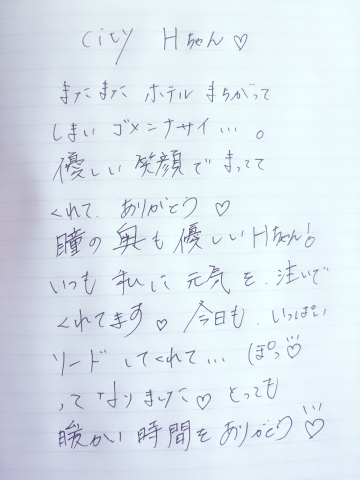 city Hちゃん♡
またまた ホテル まちがって
しまい ゴメンナサイ…。
優しい 笑顔で まってて
くれて、ありがとう♡
瞳の奥も優しいHちゃん!。
いつも 私に 元気を 注いで
くれてます♡ 今日も いっぱい
リード してくれて… ぽっ♡
ってなりました♡ とっても
暖かい 時間を ありがとう♡